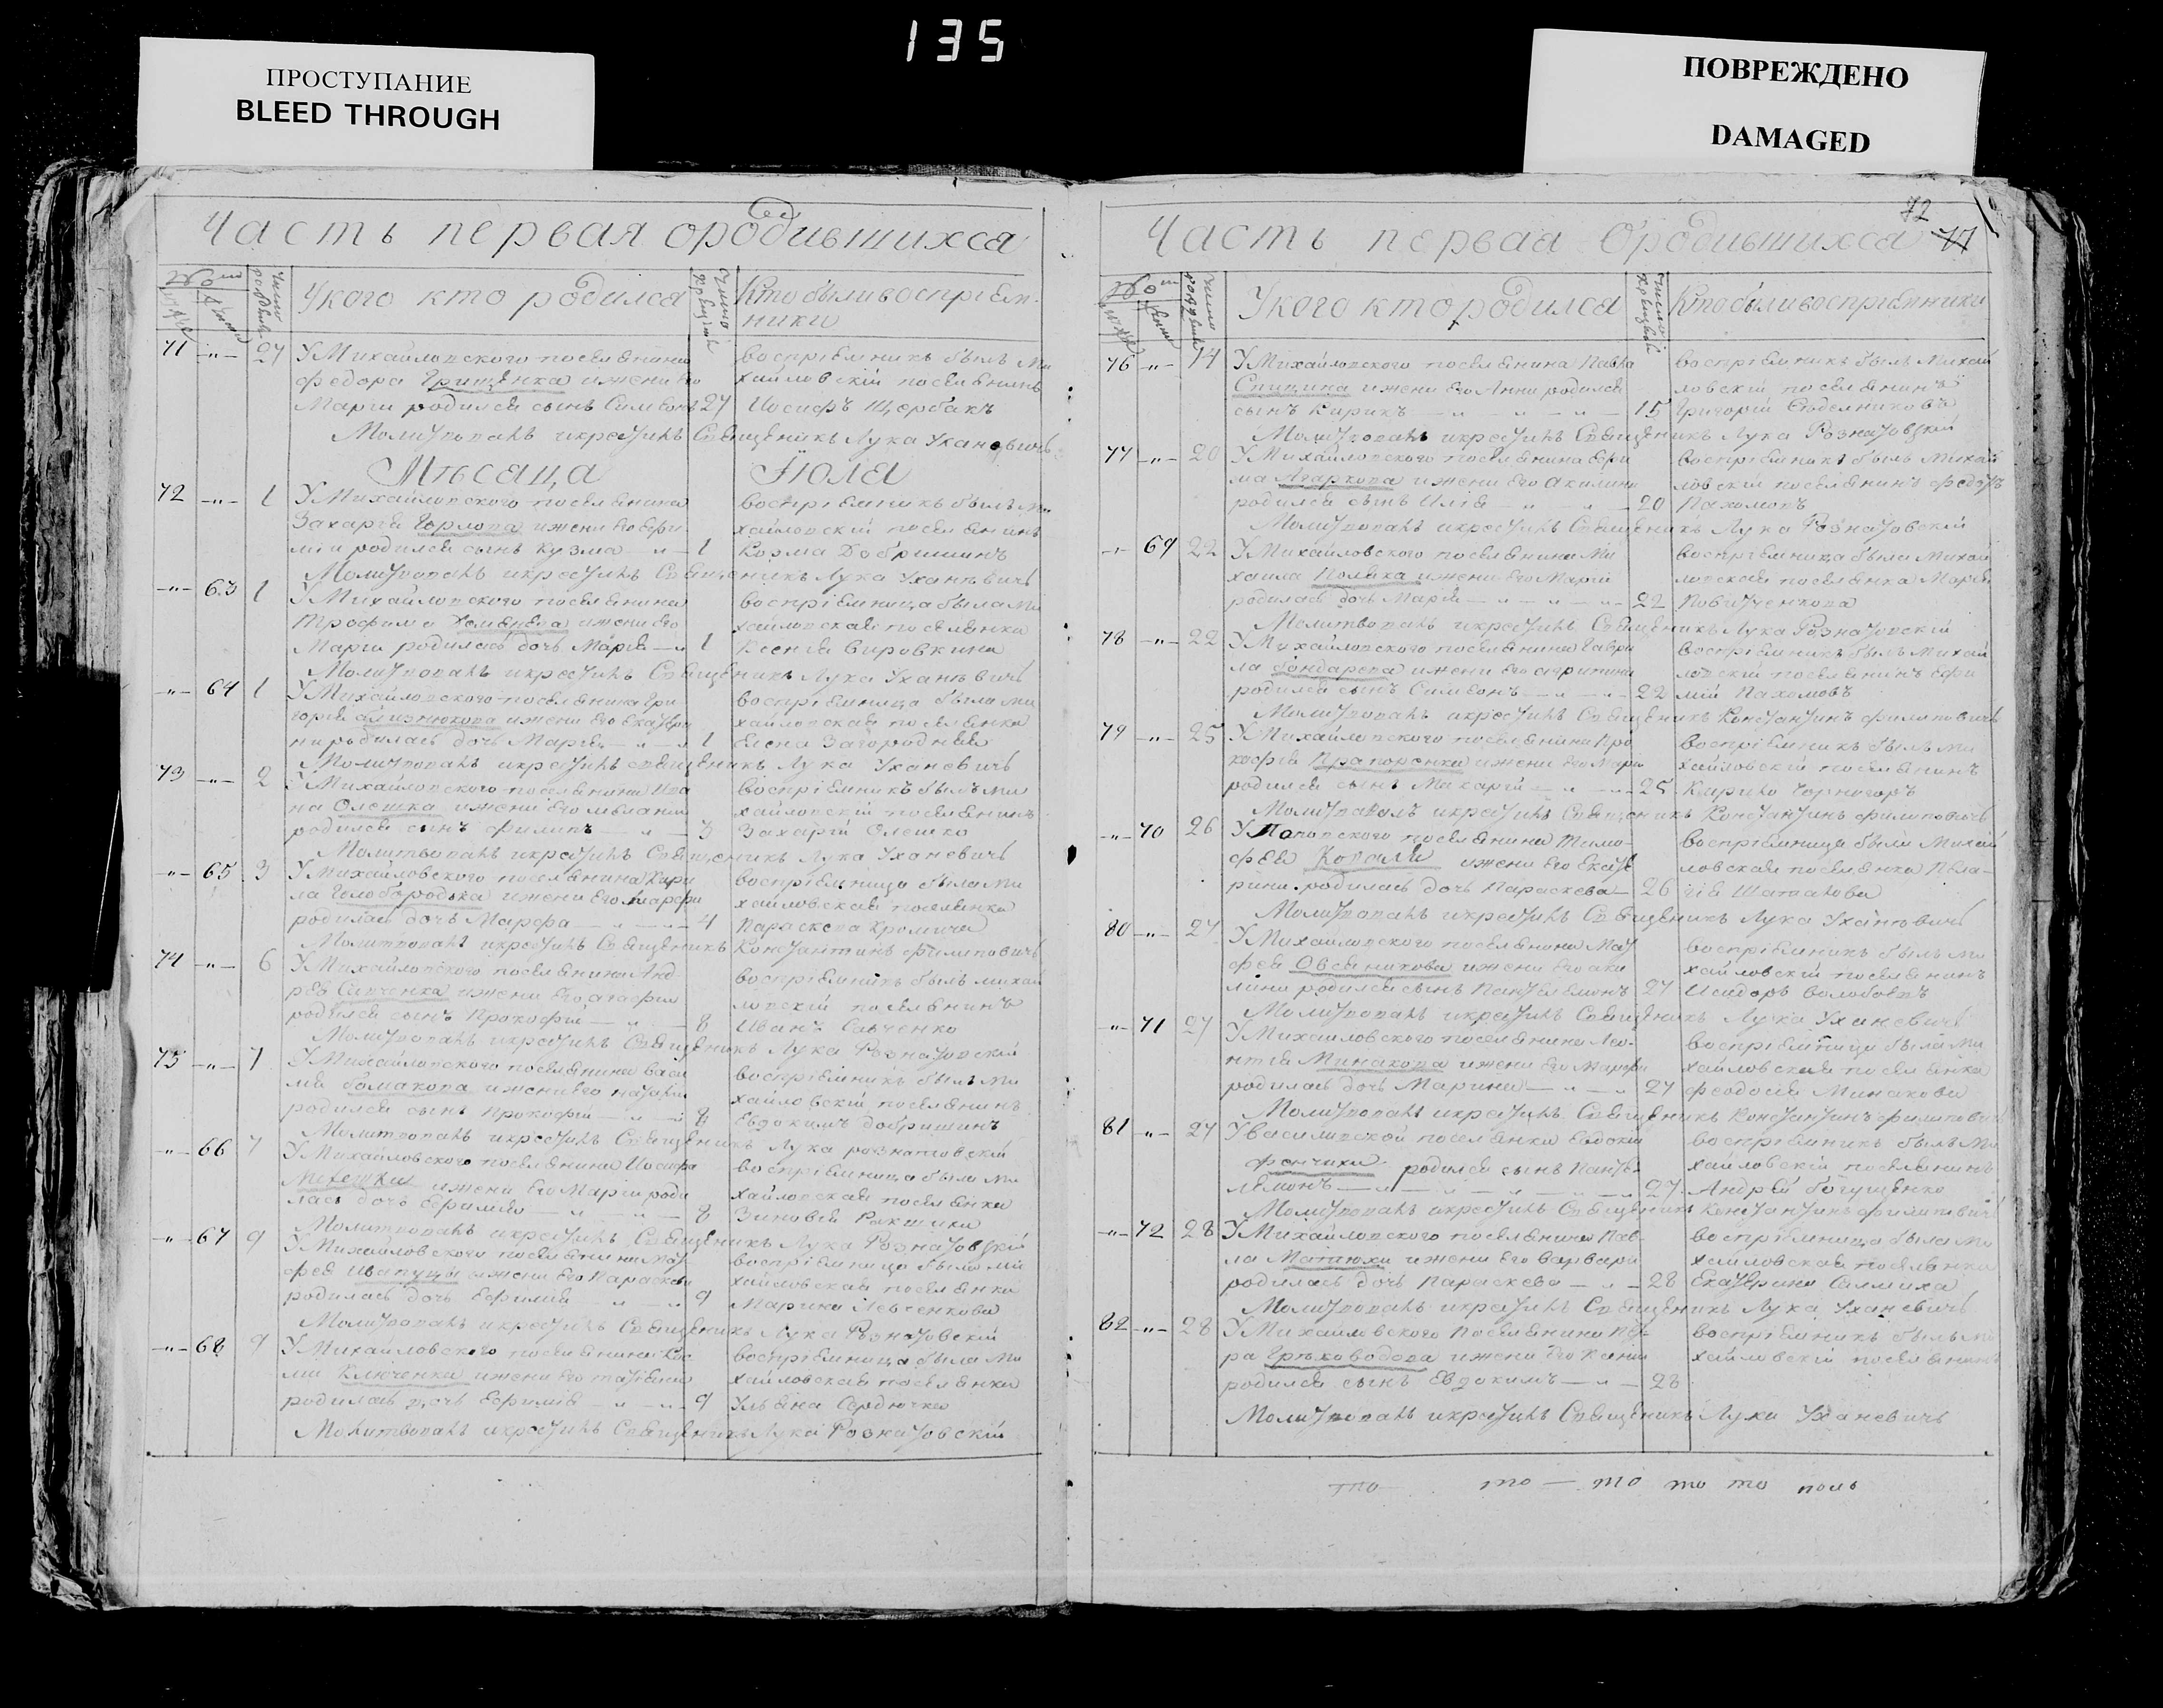 135
ПРОСТУПАНИЕ
BLEED THROUGH
ПОВРЕЖДЕНО
DAMAGED
Часть первая ородившихся
Укого кто родился
Кто были воспріем-
ники
71 -"- 27 У Михайловского поселянина
Федора Грищенка и жени его
Маріи родился сынъ Симеонъ 27
воспріемникъ былъ Ми
хайловскій поселянинъ
Иосифъ Щербакъ
Молитвовалъ и крестилъ Священикъ Лука Уханевичъ
Мѣсяца Іюля
72 -"- 1 У Михайловского поселянина
Захарія Горлова и жени его Ефи
міи родился сынъ Кузма -"- 1
воспріемникъ былъ Ми
хайловскій поселянинъ
Козма Добришинъ
Молитвовалъ и крестилъ Священикъ Лука Уханевичъ
-"- 63 1 У Михайловского поселянина
Трофима и жени его
Маріи родилась дочь Марія -"- 1
воспріемница была Ми
хайловская поселянка
Ксенія
Молитвовалъ и крестилъ Священикъ Лука Уханевичъ
-"- 64 1 У Михайловского поселянина Гри
горія Близнюкова и жени его Екатери
ни родилась дочь Марія -"- 1
воспріемница была Ми
хайловская поселянка
Елена Загородняя
Молитвовалъ и крестилъ Священикъ Лука Уханевичъ
73 -"- 2 У Михайловского поселянина Ива
на Олешка и жени его Меланіи
родился сынъ Филипъ -"- 3
воспріемникъ былъ Ми
хайловскій поселянинъ
Захарій Олешко
Молитвовалъ и крестилъ Священикъ Лука Уханевичъ
-"- 65 3 У Михайловского поселянина Кири
ла Голобородька и жени его Марфи
родилась дочь Марфа -"- 4
воспріемница была Ми
хайловская поселянка
Параскева
Молитвовалъ и крестилъ Священикъ Константинъ Филиповичъ
74 -"- 6 У Михайловского поселянина Анд
рея Савченка и жени его Агафіи
родился сынъ Прокофій -"- 8
воспріемникъ былъ Михай
ловскій поселянинъ
Иванъ Савченко
Молитвовалъ и крестилъ Священикъ Лука Рознатовскій
75 -"- 7 У Михайловского поселянина Васи
лія и жени его Наталіи
родился сынъ Прокофій -"- 8
воспріемникъ былъ Ми
хайловскій поселянинъ
Евдокимъ Добришинъ
Молитвовалъ и крестилъ Священикъ Лука Рознатовскій
-"- 66 7 У Михайловского поселянина Иосифа
и жени его Маріи роди
лась дочь Ефимія -"- 8
воспріемница была Ми
хайловская поселянка
Зиновія
Молитвовалъ и крестилъ Священикъ Лука Рознатовскій
-"- 67 9 У Михайловского поселянина Мат
фея и жени его Параскевы
родилась дочь Ефимія -"- 9
воспріемница была Ми
хайловская поселянка
Марина Левченкова
Молитвовалъ и крестилъ Священикъ Лука Рознатовскій
-"- 68 9 У Михайловского поселянина Кос
ми Ключенка и жени его Татіани
родилась дочь Ефимія -"- 9
воспріемница была Ми
хайловская поселянка
Ульяна Сердючка
Молитвовалъ и крестилъ Священикъ Лука Рознатовскій
72
77
Часть первая Ородившихся
Укого кто родился
Кто были воспріемники
76 -"- 14 У Михайловского поселянина Павла
и жени его Анни родился
сынъ Кирикъ -"- 15
воспріемникъ былъ Михай
ловскій поселянинъ
Григорій Седельниковъ
Молитвовалъ и крестилъ Священикъ Лука Рознатовскій
77 -"- 20 У Михайловского поселянина Ефи
ма Агаркова и жени его Акилини
родился сынъ Илія -"- 20
воспріемникъ былъ Михай
ловскій поселянинъ Федоръ
Пахомовъ
Молитвовалъ и крестилъ Священикъ Лука Рознатовскій
-"- 69 22 У Михайловского поселянина Ми
хаила Поляка и жени его Маріи
родилась дочь Марія -"- 22
воспріемница была Михай
ловская поселянка Марія
Молитвовалъ и крестилъ Священикъ Лука Рознатовскій
78 -"- 22 У Михайловского поселянина Гаври
ла Бондарева и жени его
родился сынъ Симеонъ -"- 22
воспріемникъ былъ Михай
ловскій поселянинъ Ефи
мій Пахомовъ
Молитвовалъ и крестилъ Священикъ Константинъ Филиповичъ
79 -"- 25 У Михайловского поселянина Про
кофія Прапоренка и жени его Маріи
родился сынъ Макарій -"- 25
воспріемникъ былъ Ми
хайловскій поселянинъ
Кирило Чорногоръ
Молитвовалъ и крестилъ Священикъ Константинъ Филиповичъ
-"- 70 26 У Поповского поселянина Тимо-
фея Коваля и жени его Екате
рини родилась дочь Параскева 26
воспріемница была Михай
ловская поселянка Пела-
гія Шаталова
Молитвовалъ и крестилъ Священикъ Лука Уханевичъ
80 -"- 27 У Михайловского поселянина Мат
фея Овсяникова и жени его Аки
лини родился сынъ Пантелеимонъ 27
воспріемникъ былъ Ми
хайловскій поселянинъ
Исидоръ Волобоевъ
Молитвовалъ и крестилъ Священикъ Лука Уханевичъ
-"- 71 27 У Михайловского поселянина Лео-
нтія Минакова и жени его Марфи
родилась дочь Марина -"- 27
воспріемница была Ми
хайловская поселянка
Феодосія Минакова
Молитвовалъ и крестилъ Священикъ Константинъ Филиповичъ
81 -"- 27 У Василивской поселянки Евдокіи
родился сынъ Панте-
леимонъ -"- 27
воспріемникъ былъ Ми
хайловскій поселянинъ
Андрей Богущенко
Молитвовалъ и крестилъ Священикъ Константинъ Филиповичъ
-"- 72 28 У Михайловского поселянина Пав-
ла Матюхи и жени его Варвари
родилась дочь Параскева -"- 28
воспріемница была Ми
хайловская поселянка
Екатерина
Молитвовалъ и крестилъ Священикъ Лука Уханевичъ
82 -"- 28 У Михайловского поселянина Пет-
ра Грѣховодова и жени его Ксеніи
родился сынъ Евдокимъ -"- 28
воспріемникъ былъ Ми
хайловскій поселянинъ
Молитвовалъ и крестилъ Священикъ Лука Уханевичъ
то то — то то то